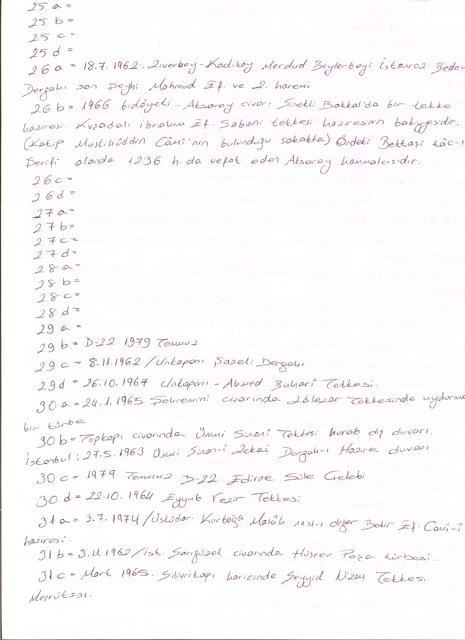 25 a =
25 b =
25 c =
25 d =
26 a = 18.7.1962. Ziverbey-Kadıköy Merdud Beylerbeyi İstavroz Bedevi
Dergahı son Şeyhi Mahmud Ef. ve 2. haremi
26 b = 1966 bidâyeti. Aksaray civarı Sinekli Bakkal'da bir tekke
haziresi. Kuşadalı İbrahim Ef. Şabani tekkesi haziresinin bakiyyesidir.
(Katip Muslihüddin Câmi'nin bulunduğu sokakta) Öndeki Bektaşi tâc-ı
Şerifi olanda 1236 h. da vefat eden Aksaray hammalcısıdır.
26 c =
26 d =
27 a =
27 b =
27 c =
27 d =
28 a =
28 b =
28 c =
28 d =
29 a =
29 b = D-22 1979 Temmuz
29 c = 8.11.1962 / Unkapanı Şazeli Dergahı
29 d = 26.10.1967 Unkapanı - Ahmed Buhari Tekkesi.
30 a = 24.1.1965. Şehremini civarında Lâlezar Tekkesinde uydurma
bir türbe
30 b = Topkapı civarında Ümmi Sinani Tekkesi harab dış duvarı.
İstanbul: 27.5.1963 Ümmi Sinan-i Zekai Dergah-ı Hazire duvarı
30 c = 1979 Temmuz D-22 Edirne Süle Çelebi
30 d = 22.10.1964 Eyyub Vezir Tekkesi
31 a = 3.7.1974 / Üsküdar. Kurbağa Nasûh nam-ı diğer Bekir Ef. Cami-i
haziresi.
31 b = 3.11.1962 / ist. Sarıgüzel civarında Hüsrev Paşa türbesi..
31 c = Mart 1965. Silivrikapı haricinde Seyyid Nizam Tekkesi
Meşrûtası.